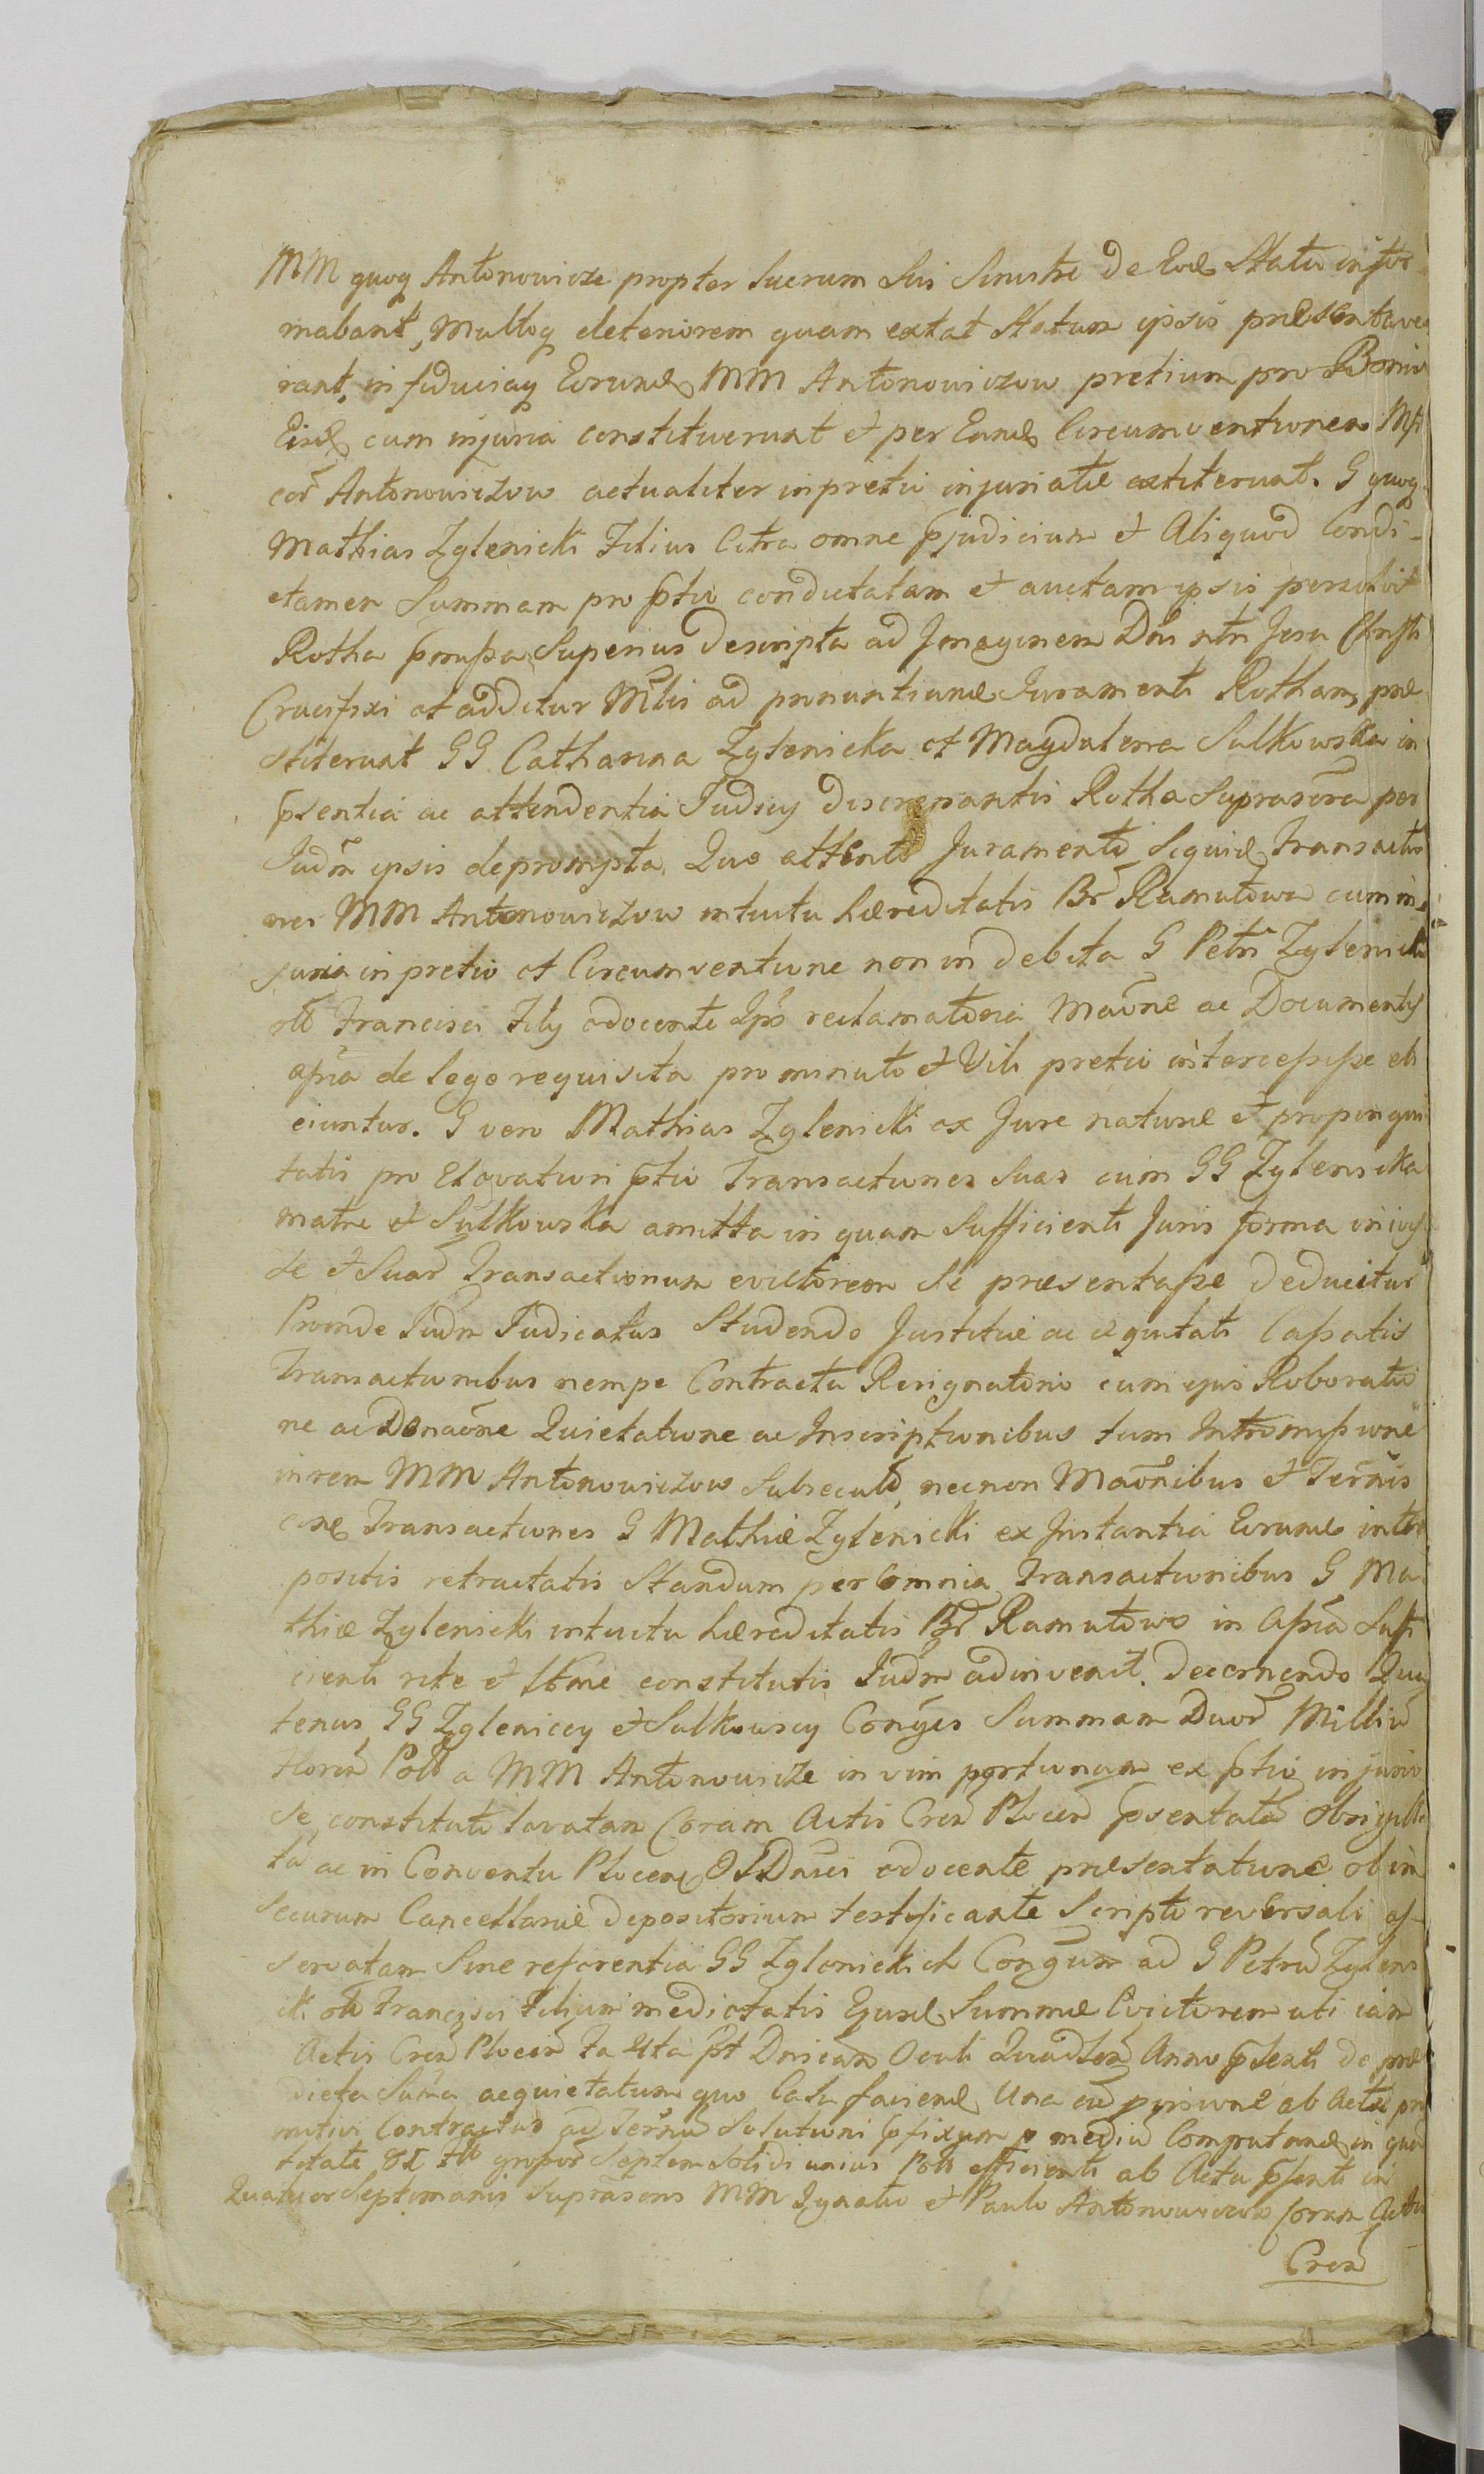 MM quoq Antonowicze propter lucrum sui sinistre de Eor statu infor
mabant, multoq deteriorem quam extat statum ipsis præsentave
rant, in fiduciaq Eorund MM Antonowiczow pretium pro Bonis
Eisd cum injuria constituerunt et per Eand Circumventionem Mfi
cor Antonowiczow actualiter in pretio injuriatæ extiterunt. G quoq
Mathias Zglenicki Filius citra omne pjudicium et Aliquod Condi-
ctamen Summam pro ptio condictatam et auctam ipsis persolvit
Rotha pmissa Superius descripta ad Jmaginem Dni ntri Jesu Christi
Crucifixi at additur Mtlis ad pronuntiand Juramenti Rotham, præ
stiterunt GG Catharina Zglenicka et Magdalena Sulkowska in
psentia ac attendentia Judicy Rotha Suprascra per
Judm ipsis deprompta. Quo attento Juramento Siquid Transactio
nes MM Antonowiczow intuitu hæreditatis Br Ramutowo cum in
juria in pretio et Circumventione non indebita G Petri Zglenicki
olim Francisci Filij edocente Ipo reclamatoria Maone ac Documentis
apria de lege requisita pro minuto et Vili pretio intercessisse eli
ciuntur. G vero Mathias Zglenicki ex Jure naturæ et propinqui
tatis pro Elevatiori ptio Transactiones Suas cum GG Zglenicka
matre et Sulkowska amitta in quam Sufficienti Juris forma
se et Suar Transactionum evictorem se præsentasse deducitur
Proinde Judm Judicatus Studendo Justitiæ ac æquitati Cassatis
Transactionibus nempe Contractu Resignatorio cum ejus Roboratio
ne ac Donaone Quietatione ac Inscriptionibus tum Intromissione
in rem MM Antonowiczow Subsecuto, necnon Maonibus et Ternis
Transactiones G Mathiæ Zglenicki ex Jnstantia Eorund inter
positis retractatis Standum per Omnia Transactionibus G Ma
thiæ Zglenicki intuitu hæreditatis Br Ramutowo in Apria Suffi
cienti rite et lttme constitutis Judm adinvenit. Decernendo Qua
tenus GG Zgleniccy et Sulkowscy Conges Summam Duor Milliu
Floren Poll a MM Antonowicze in vim portionum ex ptio injurio
se constituto levatam Coram Actis Cren Plocen psentata obsigilla
ta ac in Conventu Plocen edocente præsentatione ob in
securum Cancellariæ depositorium testificante Scripto reversali as
servatam Sine referentia GG Zglenickich Congum ad G Petru Zglenic
ki olim Francisci Filium medietatis Ejusd Summæ Evictorem uti iam
Actis Cren Plocen Fa 4ta pt Dnicam Oculi Quadlem Anno psenti de præ
dicta Suma acquietatum quo Casu faciend Una cu provisione ab Actu pri
mitivi Contractus ad Ternu Solutioni pfixum p mediu Computand in quan
titate 82 Fl gropor Septem Solidi unius Poll efficienti ab Actu psenti in
Quatuor Septimanis Suprascris MM Ignatio et Paulo Antonowiczow Coram Actis
Cren